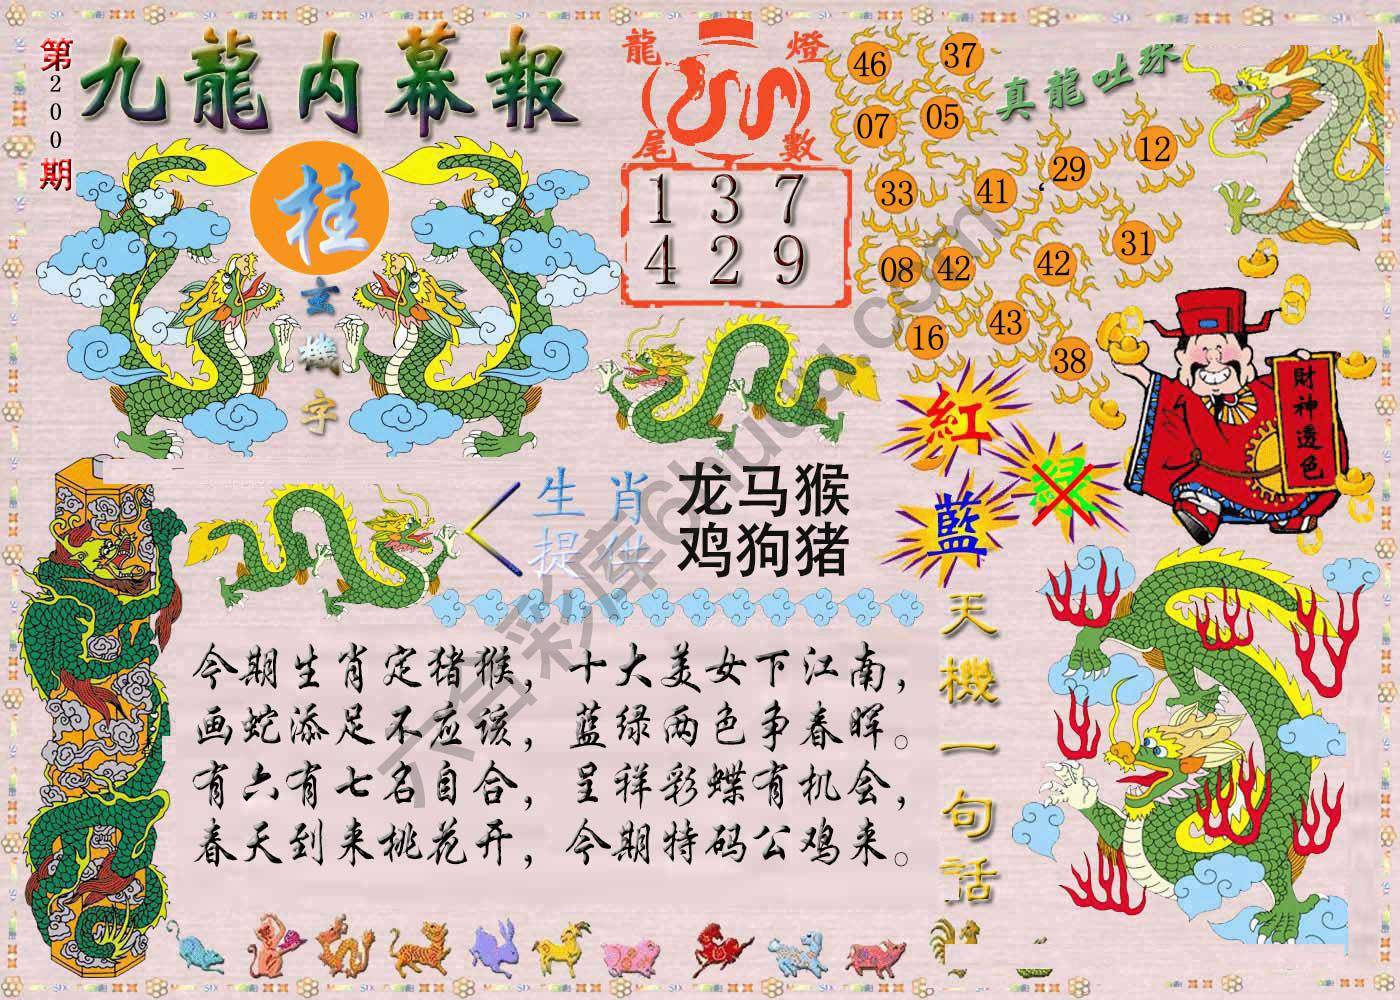 第200期
九龍内幕報
桂
玄機字
龍燈
尾數
1 3 7
4 2 9
真龍吐珠
46 37
07 05
33 41 29 12
08 42 42 31
16 43 38
財神透色
紅
藍
綠
生肖
提供
龙马猴
鸡狗猪
今期生肖定猪猴，十大美女下江南，
画蛇添足不应该，蓝绿两色争春晖。
有六有七名自合，呈祥彩蝶有机会，
春天到来桃花开，今期特码公鸡来。
天機一句話
六合彩库6huuu.com